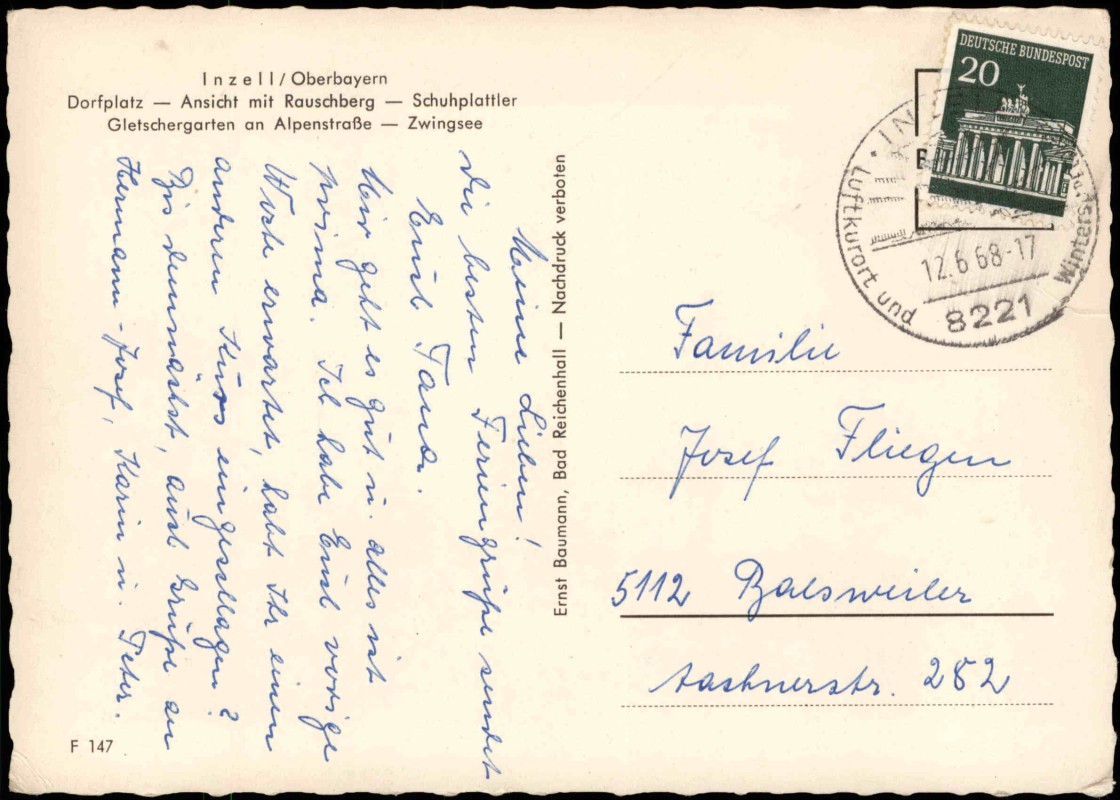 Inzell/Oberbayern
Dorfplatz — Ansicht mit Rauschberg — Schuhplattler
Gletschergarten an Alpenstraße — Zwingsee
Meine Lieben!
Die besten Feriengrüße sendet
Euch Tand.
Mir geht es gut u. alles ist
prima. Ich habe Euch vorige
Woche erwartet, habt Ihr einen
anderen Kurs eingeschlagen?
Bis demnächst, auch Grüße an
Hermann-Josef, Karin u. Peter.
F 147
Ernst Baumann, Bad Reichenhall — Nachdruck verboten
DEUTSCHE BUNDESPOST
20
Luftkurort und Winters
12.6.68-17
8221
Familie
Josef Fliegen
5112 Baesweiler
Aachnerstr. 282